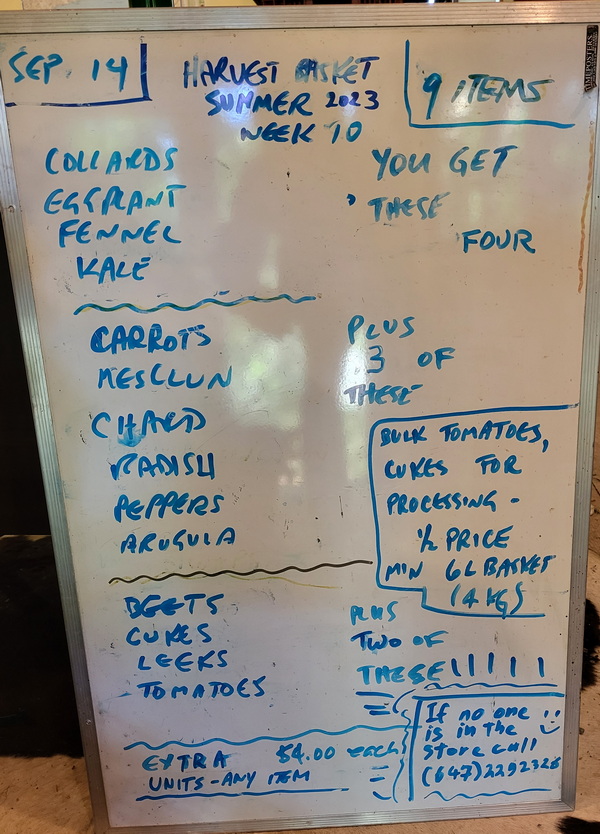 SEP. 14
HARVEST BASKET
SUMMER 2023
WEEK 10
9 ITEMS
COLLARDS
EGGPLANT
FENNEL
KALE
YOU GET
THESE
FOUR
CARROTS
MESCLUN
CHARD
RADISH
PEPPERS
ARUGULA
PLUS
3 OF
THESE
BULK TOMATOES,
CUKES FOR
PROCESSING -
1/2 PRICE
MIN 6L BASKET
(4 KG)
BEETS
CUKES
LEEKS
TOMATOES
PLUS
TWO OF
THESE !!!!!
EXTRA $4.00 each
UNITS - ANY ITEM
If no one
is in the
store call
(647)2292328